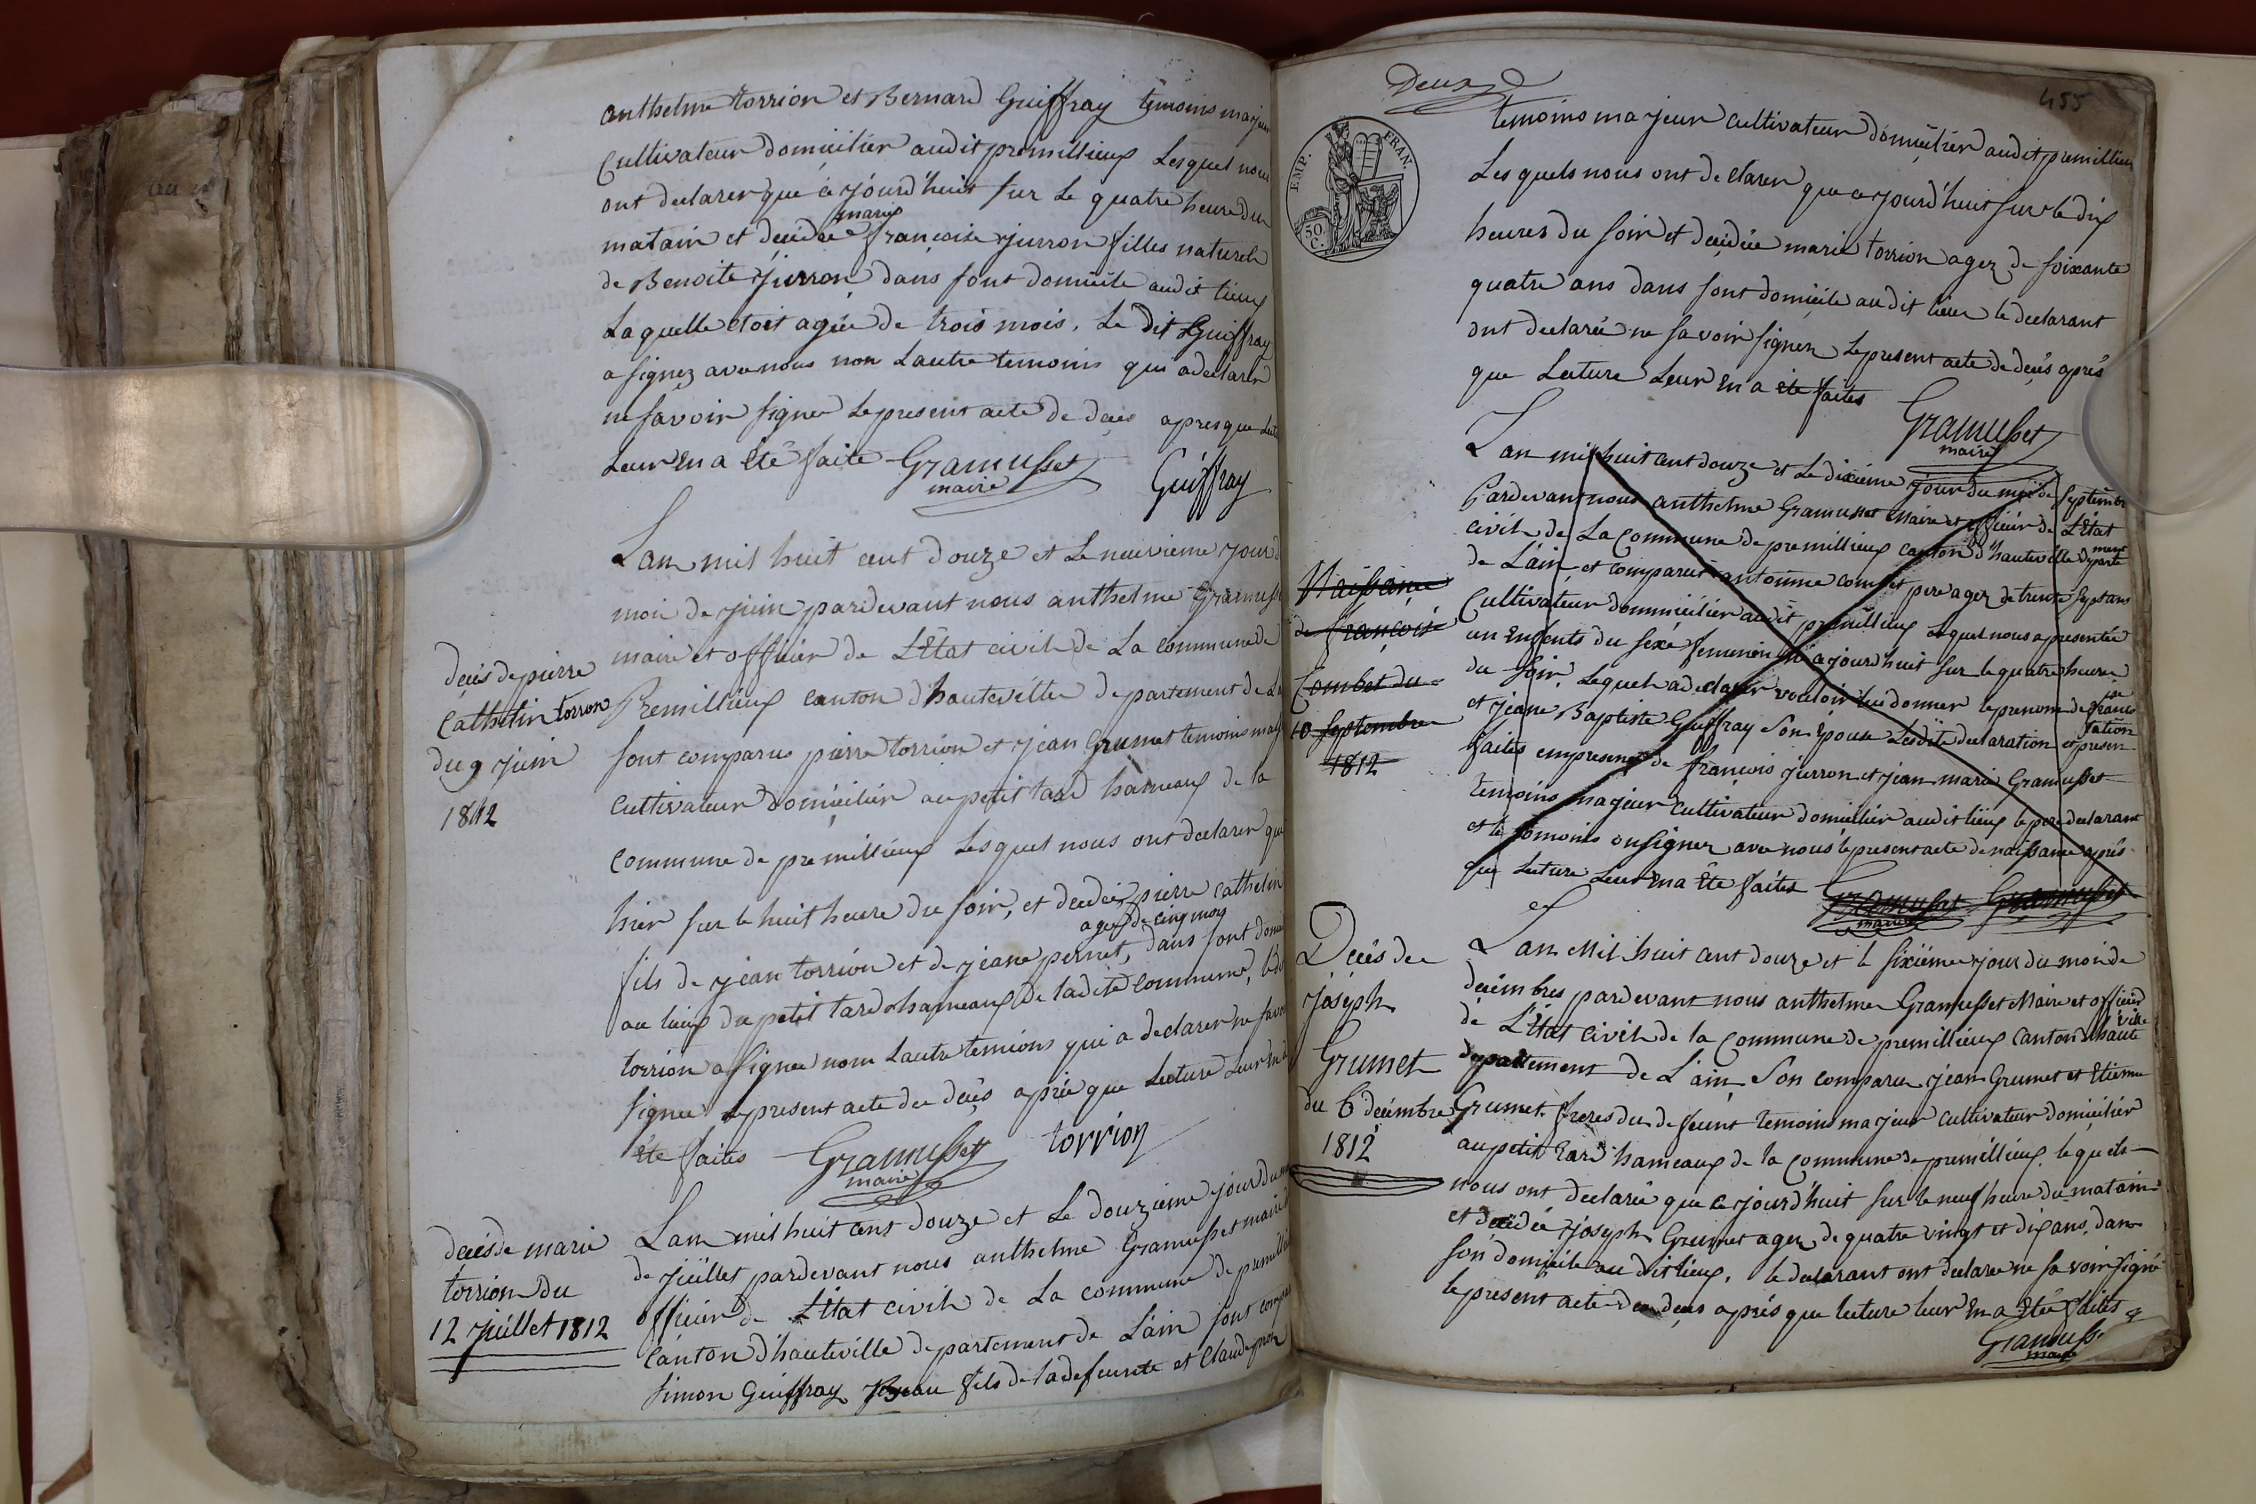 anthelme torrion et Bernard Guiffray temoins majeur
Cultivateur domicilier audit premillieux Lesquel nous
ont declarer que ce jourd'huit sur Le quatre heure du
marie
matain et decidee françoise jurron filles naturele
de Benoite Jurron dans sont domicile audit lieux
Laquelle etoit agée de trois mois. Le dit Guiffray
a signez avec nous non Lautre temoins qui a declarer
ne savoir signer Le present acte de deces apres que
Leur en a Eté faite Gramusset Guiffray
maire
Lan mil huit cent douze et Le neuvieme jour
moi de juin pardevant nous anthelme Gramusse
maire et officier de L'Etat civil de La commune de
deces de pierre
Cathelin torron
du 9 juin
1812
Premillieux canton d'hauteville departement de
sont comparus pierre torrion et jean Grumet temoins
cultivateur domicilier au petit tard hameaux de la
commune de premillieux Lesquel nous ont declarer que
hier sur le huit heure du soir, et decidée pierre cathelin
agez de cinq moy
fils de jean torrion et de jeane pernet, dans sont
au lieux du petit tard hameaux de ladite commune,
torrion a signer nom Lautre temions qui a declarer ne
signer le present acte de deces apriè que Lecture Leur en
Ete faites Gramusset torrion
maire
deces de marie
torrion du
12 juillet 1812
Lan mil huit cent douze et Le douzieme jour du
de juillet pardevant nous anthelme Gramusset maire
officier de L'Etat civil de La commune de
canton d'hauteville departement de L'ain sont
simon Guiffray fils de la defeunte et Claude
Deux
455
EMP. FRAN.
50 C.
temoins majeur cultivateur domicilier audit premillieu
Lesquels nous ont declarer que ce jourd'huit sur le dix
heures du soir et decidée marie torrion agez de soixante
quatre ans dans sont domicile audit lieu le declarant
ont declarée ne savoir signer Le present acte de deces après
que Lecture Leur en a ete faites
Gramusset
maire
Naissance
de françoise
Combet du
10 Septembre
1812
Lan mil huit cent douze et Le dixième jour du moi de Septembre
Pardevant nous anthelme Gramusset Maire et officier de L'Etat
civil de La Commune de premillieux canton d'hauteville departe
ment
de L'ain et comparut antoinne combet pere agez de trente sept ans
Cultivateur dommicilier audit premillieux Lequel nous a presentée
un Enfents du sexe femenin né aujourd'huit sur le quatre heure
du soir, Lequel a declarer vouloir lui donner le prenom de franç
et jeane Baptiste Guiffray Son Epouse Lesdite declaration et presen
tation
faites empresence de françois jurron et jean marie Gramusset
temoins majeur cultivateur domicilier audit lieux le pere declarant
et le temoins on signer avec nous le present acte de naissance après
que Lecture Leur en a Ete faites Gramusset Gramusset
maire
Decès de
joseph
Grumet
du 6 decembre
1812
Lan Mil huit cent douze et le sixième jour du moi de
decembres pardevant nous anthelme Gramusset Maire et officier
de L'Etat civil de la Commune de premillieux Canton d'haute
ville
departement de L'ain Son comparu jean Grumet et Etienne
Grumet freres du defeunt temoins majeur cultivateur domicilier
au petit tard hameaux de la commune de premillieux lequels
nous ont declarée que ce jourd'huit sur le neuf heure du matain
et decidée joseph Grumet agez de quatre vingt et dix ans dans
son domicile audit lieux, le declarant ont declaree ne savoir signé
le present acte de deces aprés que lecture leur en a Eté faites
Gramusset
maire